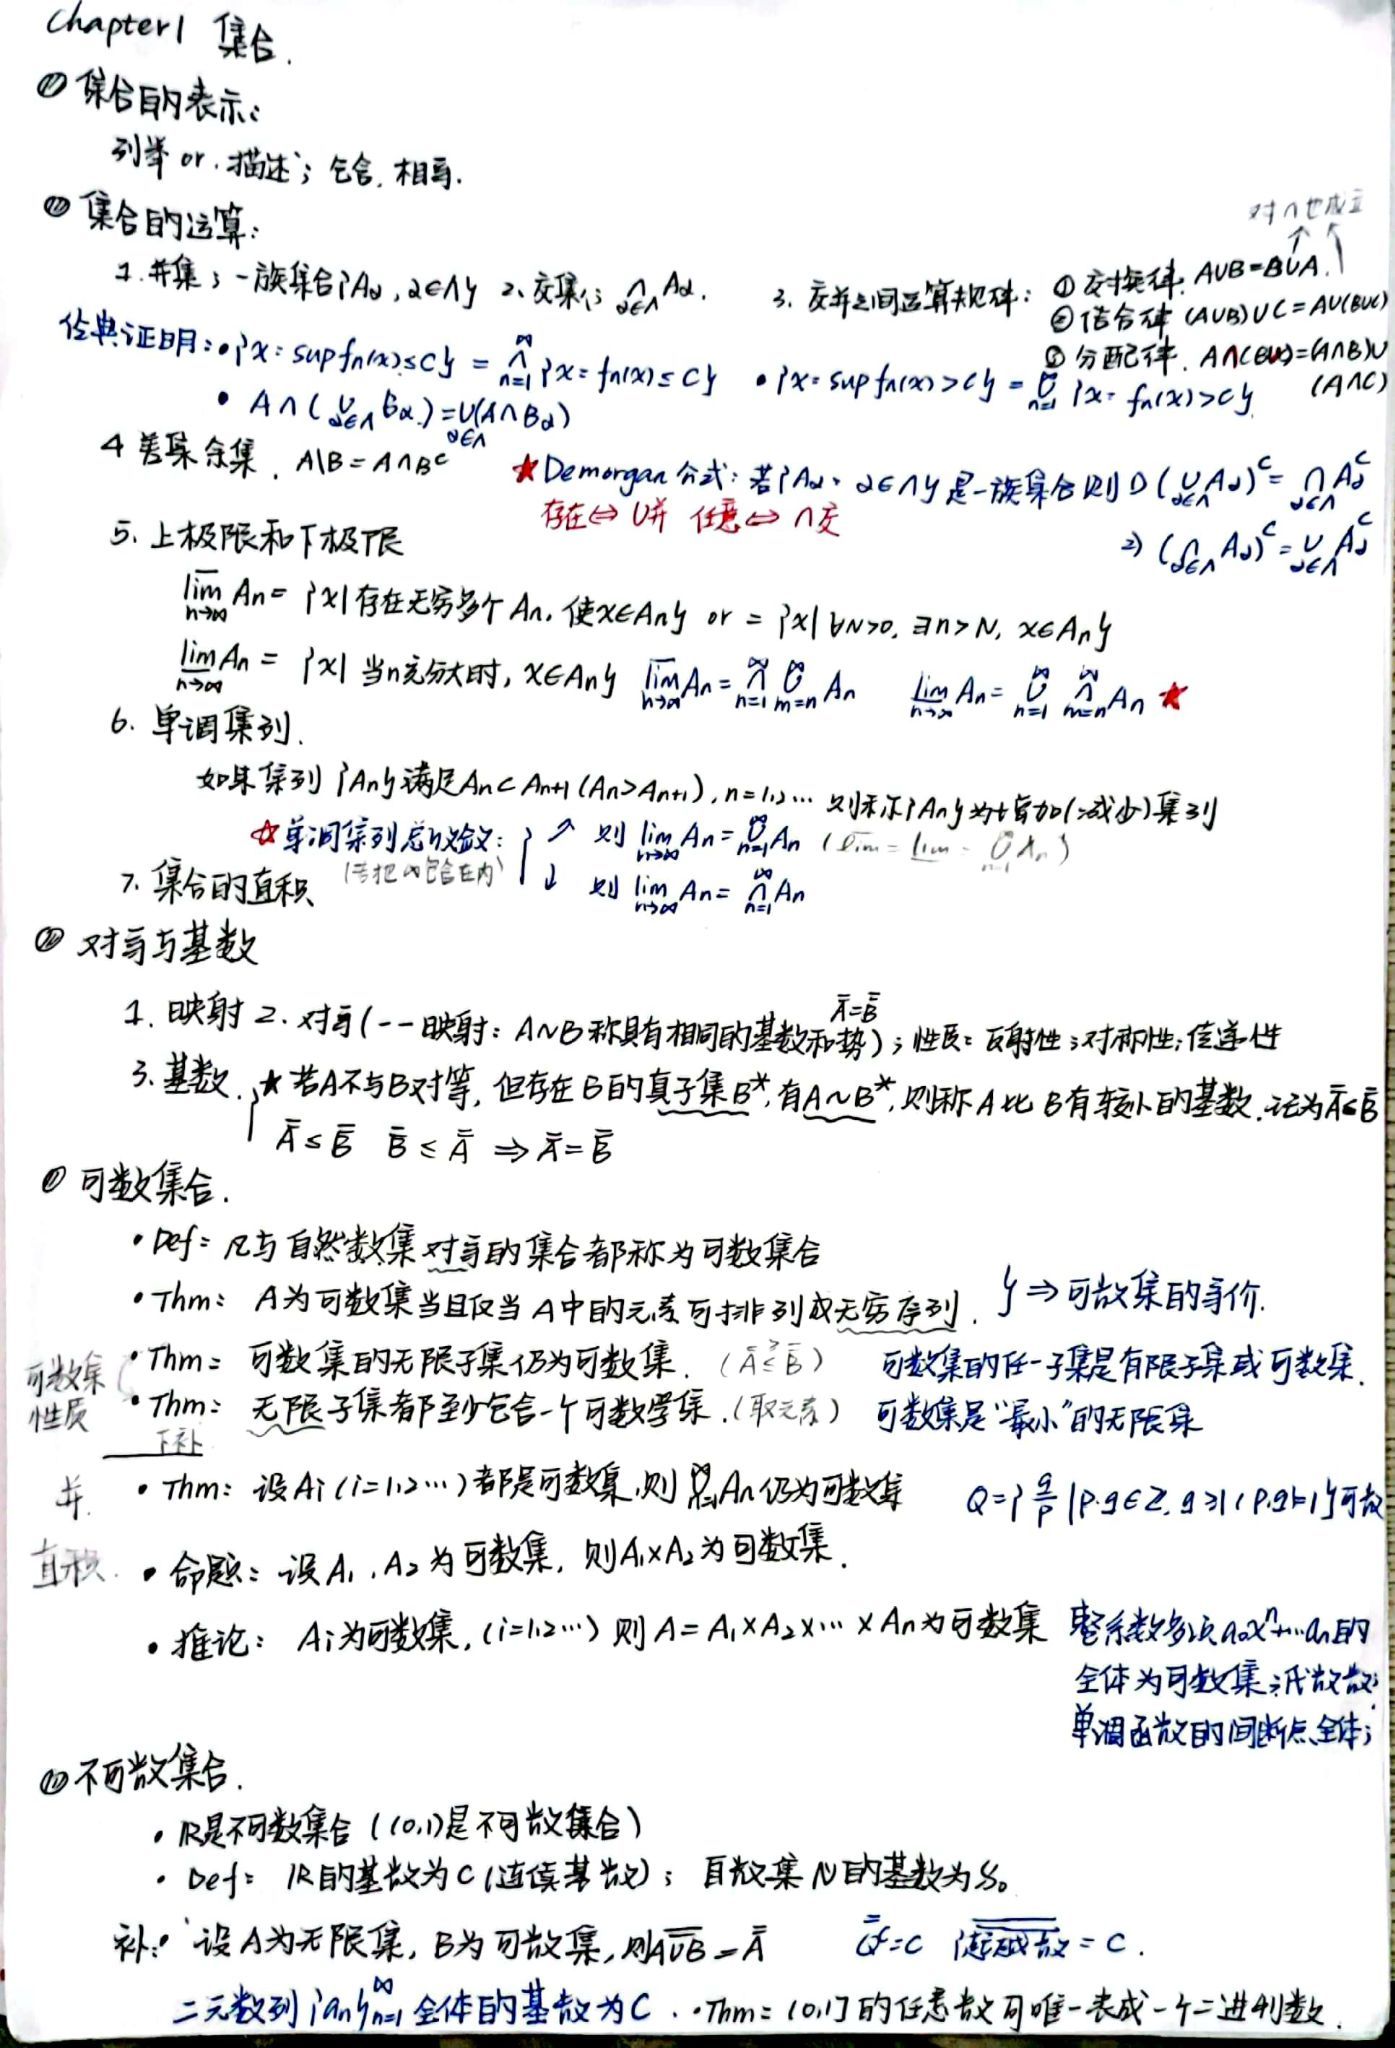 Chapter1 集合.
(1) 集合的表示:
列举 or. 描述; 包含. 相等.
(2) 集合的运算:
对∩也成立
1. 并集; 一族集合{Aα, α∈Λ} 2. 交集; ∩_{α∈Λ} Aα. 3. 交并之间运算规律: ① 交换律. A∪B=B∪A.
② 结合律 (A∪B)∪C=A∪(B∪C)
③ 分配律. A∩(B∪C)=(A∩B)∪
(A∩C)
经典证明: • {x: sup fn(x)≤C} = ∩_{n=1}^∞ {x: fn(x)≤C} • {x: sup fn(x)>C} = ∪_{n=1}^∞ {x: fn(x)>C}
• A∩(∪_{α∈Λ} Bα)=∪_{α∈Λ}(A∩Bα)
4 差集 余集. A\B=A∩B^C ★Demorgan公式: 若{Aα, α∈Λ}是一族集合则 1) (∪_{α∈Λ} Aα)^C = ∩_{α∈Λ} Aα^C
存在⇔∪并 任意⇔∩交
2) (∩_{α∈Λ} Aα)^C = ∪_{α∈Λ} Aα^C
5. 上极限和下极限
\overline{lim}_{n→∞} An= {x|存在无穷多个An, 使x∈An} or = {x|∀N>0, ∃n>N, x∈An}
\underline{lim}_{n→∞} An = {x|当n充分大时, x∈An} \overline{lim}_{n→∞} An=∩_{n=1}^∞ ∪_{m=n}^∞ An \underline{lim}_{n→∞} An= ∪_{n=1}^∞ ∩_{m=n}^∞ An ★
6. 单调集列.
如果集列{An}满足An⊂An+1(An⊃An+1), n=1,2… 则称{An}为增加(减少)集列
☆单调集列总收敛: { ↗ 则 lim_{n→∞} An=∪_{n=1}^∞ An (\overline{lim} = \underline{lim} = ∪_{n=1}^∞ An)
(若把∞包含在内)
↓ 则 lim_{n→∞} An= ∩_{n=1}^∞ An
7. 集合的直积
(3) 对等与基数
1. 映射 2. 对等(一一映射: A~B称具有相同的基数和势 \bar{\bar{A}}=\bar{\bar{B}}); 性质: 反射性; 对称性; 传递性
3. 基数. ★若A不与B对等, 但存在B的真子集B*, 有A~B*, 则称A比B有较小的基数. 记为\bar{\bar{A}}≤\bar{\bar{B}}
\bar{\bar{A}}≤\bar{\bar{B}} \bar{\bar{B}}≤\bar{\bar{A}} ⇒ \bar{\bar{A}}=\bar{\bar{B}}
(4) 可数集合.
• Def: 凡与自然数集对等的集合都称为可数集合
• Thm: A为可数集当且仅当A中的元素可排列成无穷序列. } ⇒ 可数集的等价.
可数集
性质
• Thm: 可数集的无限子集仍为可数集. (\bar{\bar{A}}≤\bar{\bar{B}}) 可数集的任一子集是有限子集或可数集.
• Thm: 无限子集都至少包含一个可数子集. (取元素) 可数集是“最小”的无限集
下补
并. • Thm: 设Ai(i=1,2…)都是可数集, 则∪_{n=1}^∞ An仍为可数集 Q={q/p |p.q∈Z, q≥1 (p,q)=1}可数
直积. • 命题: 设A1, A2为可数集, 则A1×A2为可数集.
• 推论: Ai为可数集, (i=1,2…) 则 A=A1×A2×…×An为可数集 整系数多项式a0x^n+…an的
全体为可数集; 代数数;
单调函数的间断点全体;
(5) 不可数集合.
• R是不可数集合 ((0,1)是不可数集合)
• Def: R的基数为C(连续基数); 自数集N的基数为ℵ0
补: • 设A为无限集, B为可数集, 则\bar{\bar{A∪B}}=\bar{\bar{A}} =C = C.
二元数列{an}_{n=1}^∞全体的基数为C. • Thm: (0,1]的任意数可唯一表成一个二进制数.